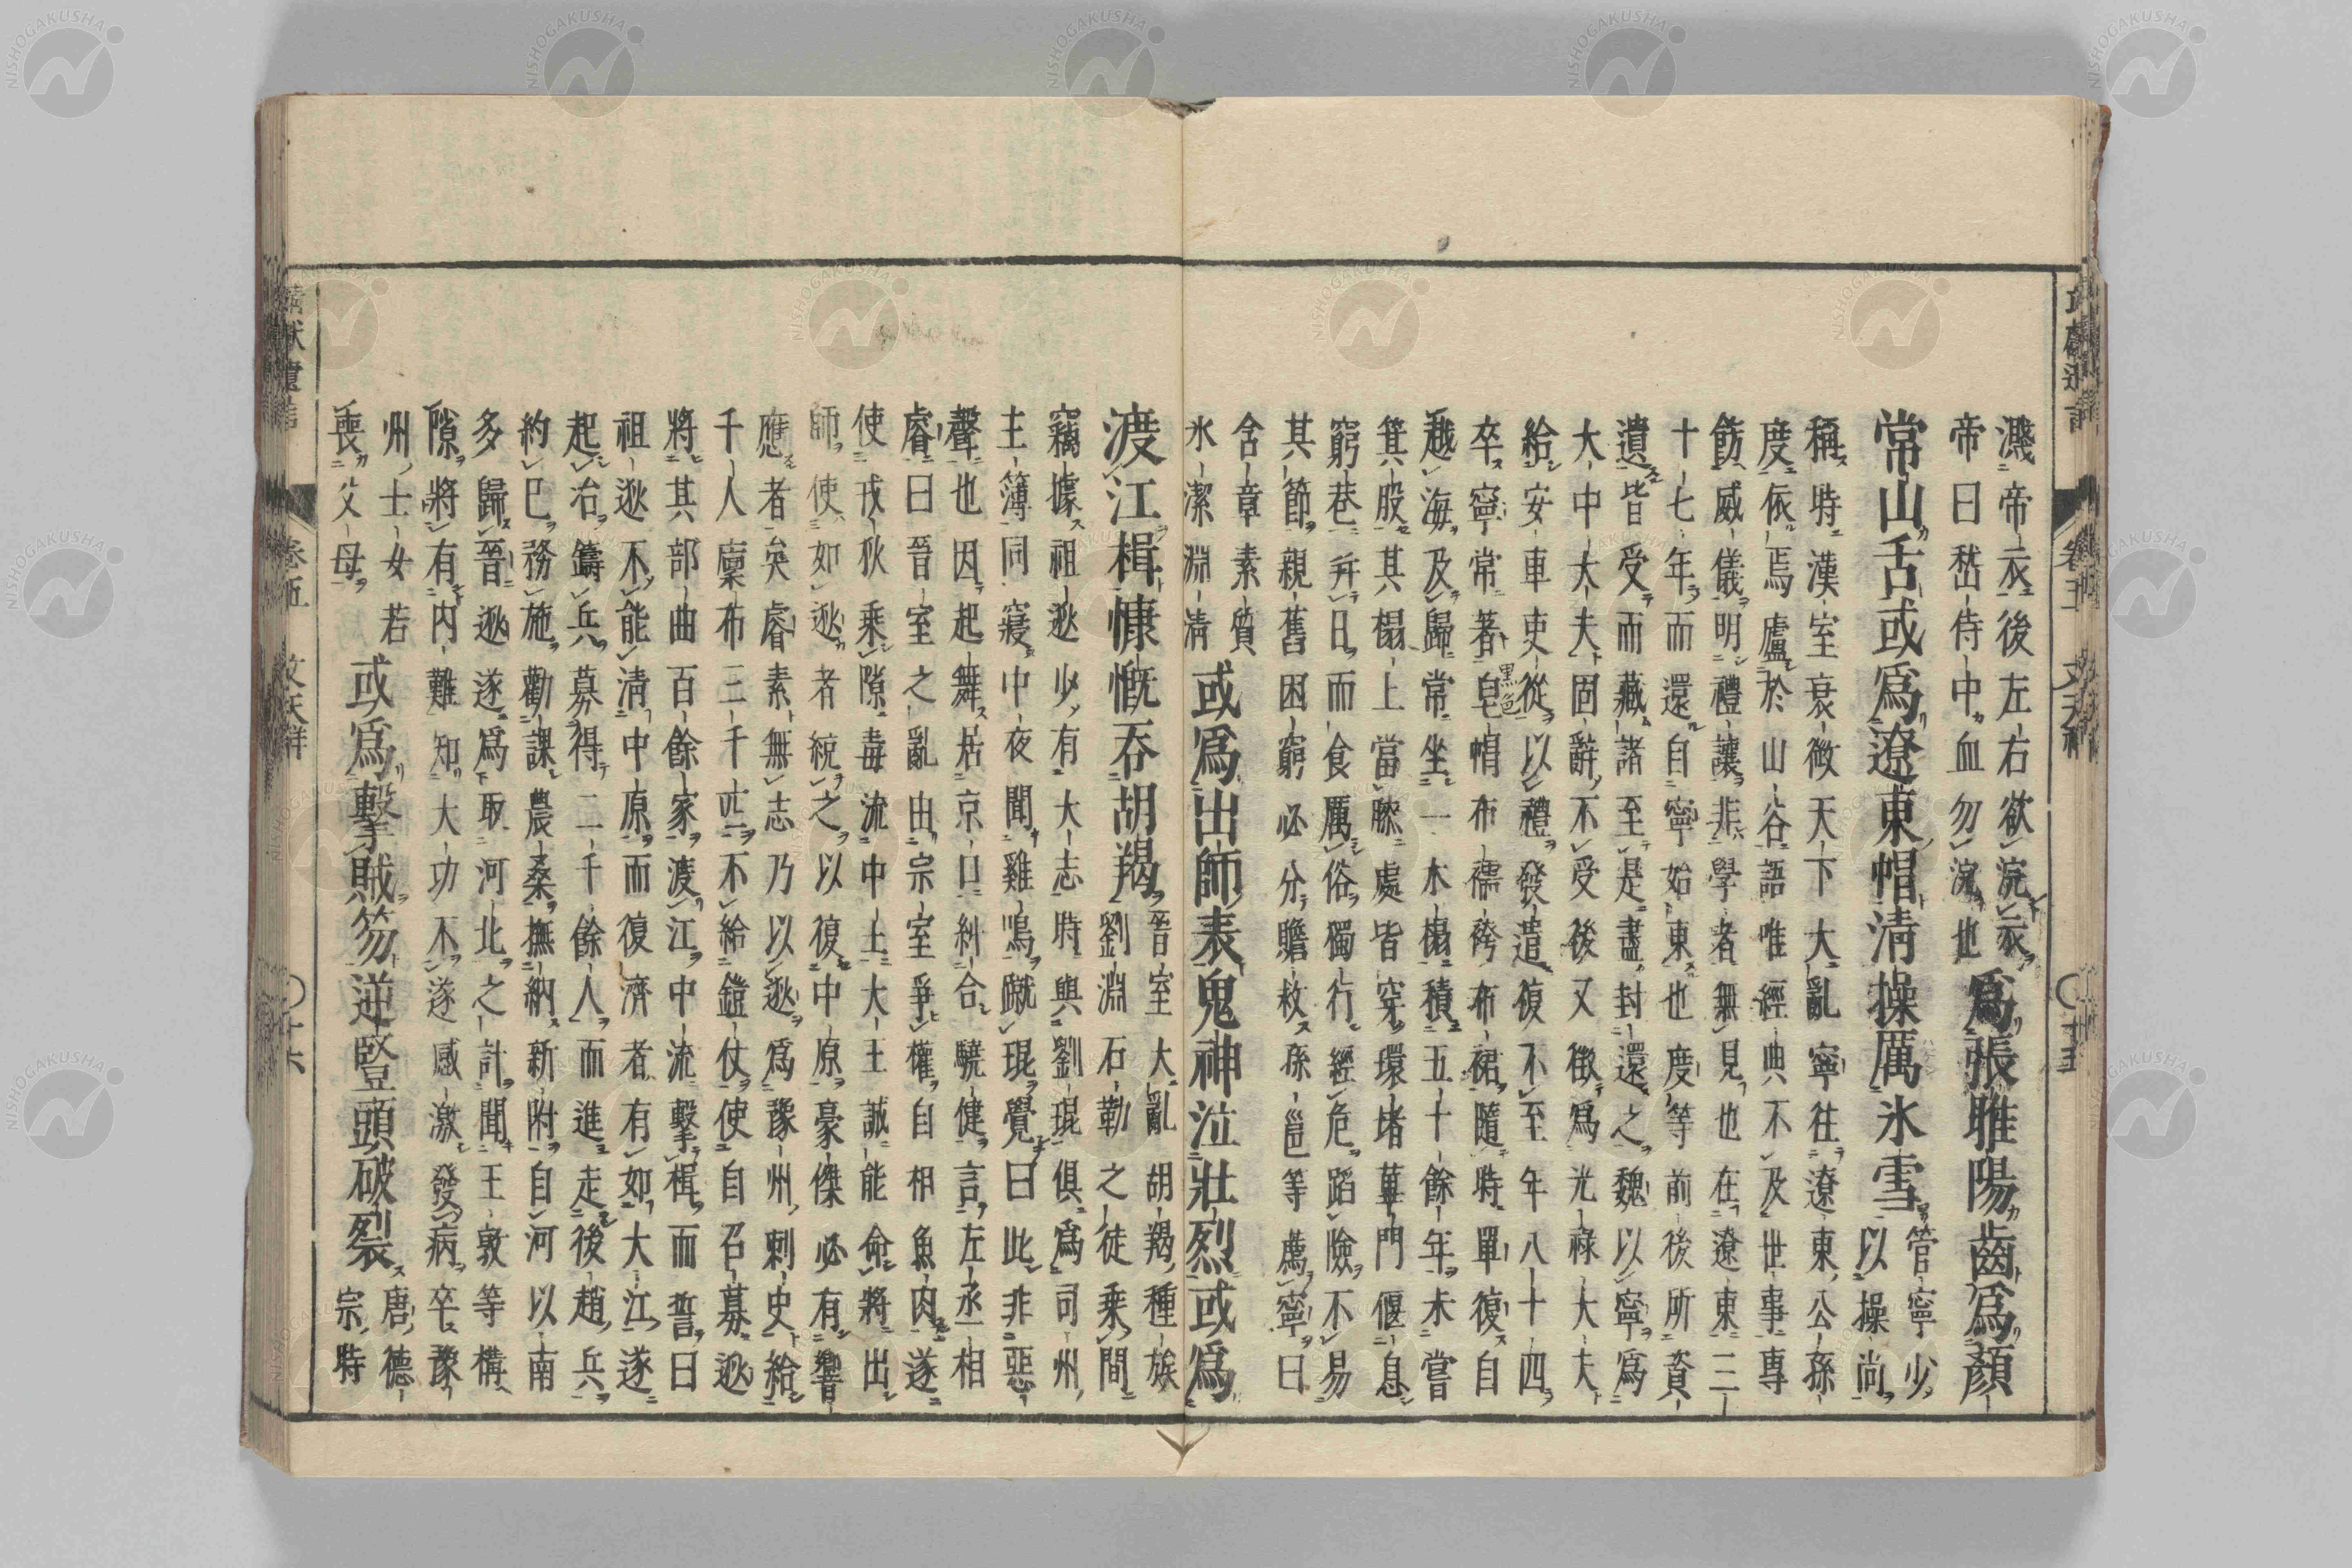 靖獻遺言 卷五 文天祥 十五
濺帝衣後左右欲浣衣
帝曰嵆侍中血勿浣也
爲張睢陽齒爲顏
常山舌或爲遼東帽清操厲氷雪
管寧少
以操尚
稱時漢室衰微天下大亂寧往遼東公孫
度依焉廬於山谷語唯經典不及世事專
飭威儀明禮讓非學者無見也在遼東三
十七年而還自寧始東也度等前後所資
遺皆受而藏諸至是盡封還之魏以寧爲
大中大夫固辭不受後又徵爲光祿大夫
給安車吏從以禮發遣復不至年八十四
卒寧常著皁黑色帽布襦袴布裙隨時單復自
越海及歸常坐一木榻積五十餘年未嘗
箕股其榻上當膝處皆穿環堵蓽門偃息
窮巷并日而食厲俗獨行經危蹈險不易
其節親舊困窮必分贍救孫邕等薦寧曰
含章素質
氷潔淵清
或爲出師表鬼神泣壯烈或爲
渡江楫慷慨吞胡羯
晉室大亂胡羯種族
劉淵石勒之徒乘間
竊據祖逖少有大志時與劉琨俱爲司州
主簿同寢中夜聞雞鳴蹴琨覺曰此非惡
聲也因起舞居京口糾合驍健言左丞相
睿曰晉室之亂由宗室爭權自相魚肉遂
使戎狄乘隙毒流中土大王誠能命將出
師使如逖者統之以復中原豪傑必有響
應者矣睿素無志乃以逖爲豫州刺史給
千人廩布三千疋不給鎧仗使自召募逖
將其部曲百餘家渡江中流擊楫而誓曰
祖逖不能清中原而復濟者有如大江遂
起冶鑄兵募得二千餘人而進走後趙兵
約己務施勸課農桑撫納新附自河以南
多歸晉逖遂爲取河北之計聞王敦等構
隙將有内難知大功不遂感激發病卒豫
州士女若
喪父母
或爲擊賊笏逆豎頭破裂
唐德
宗時
靖獻遺言 卷五 文天祥 十六